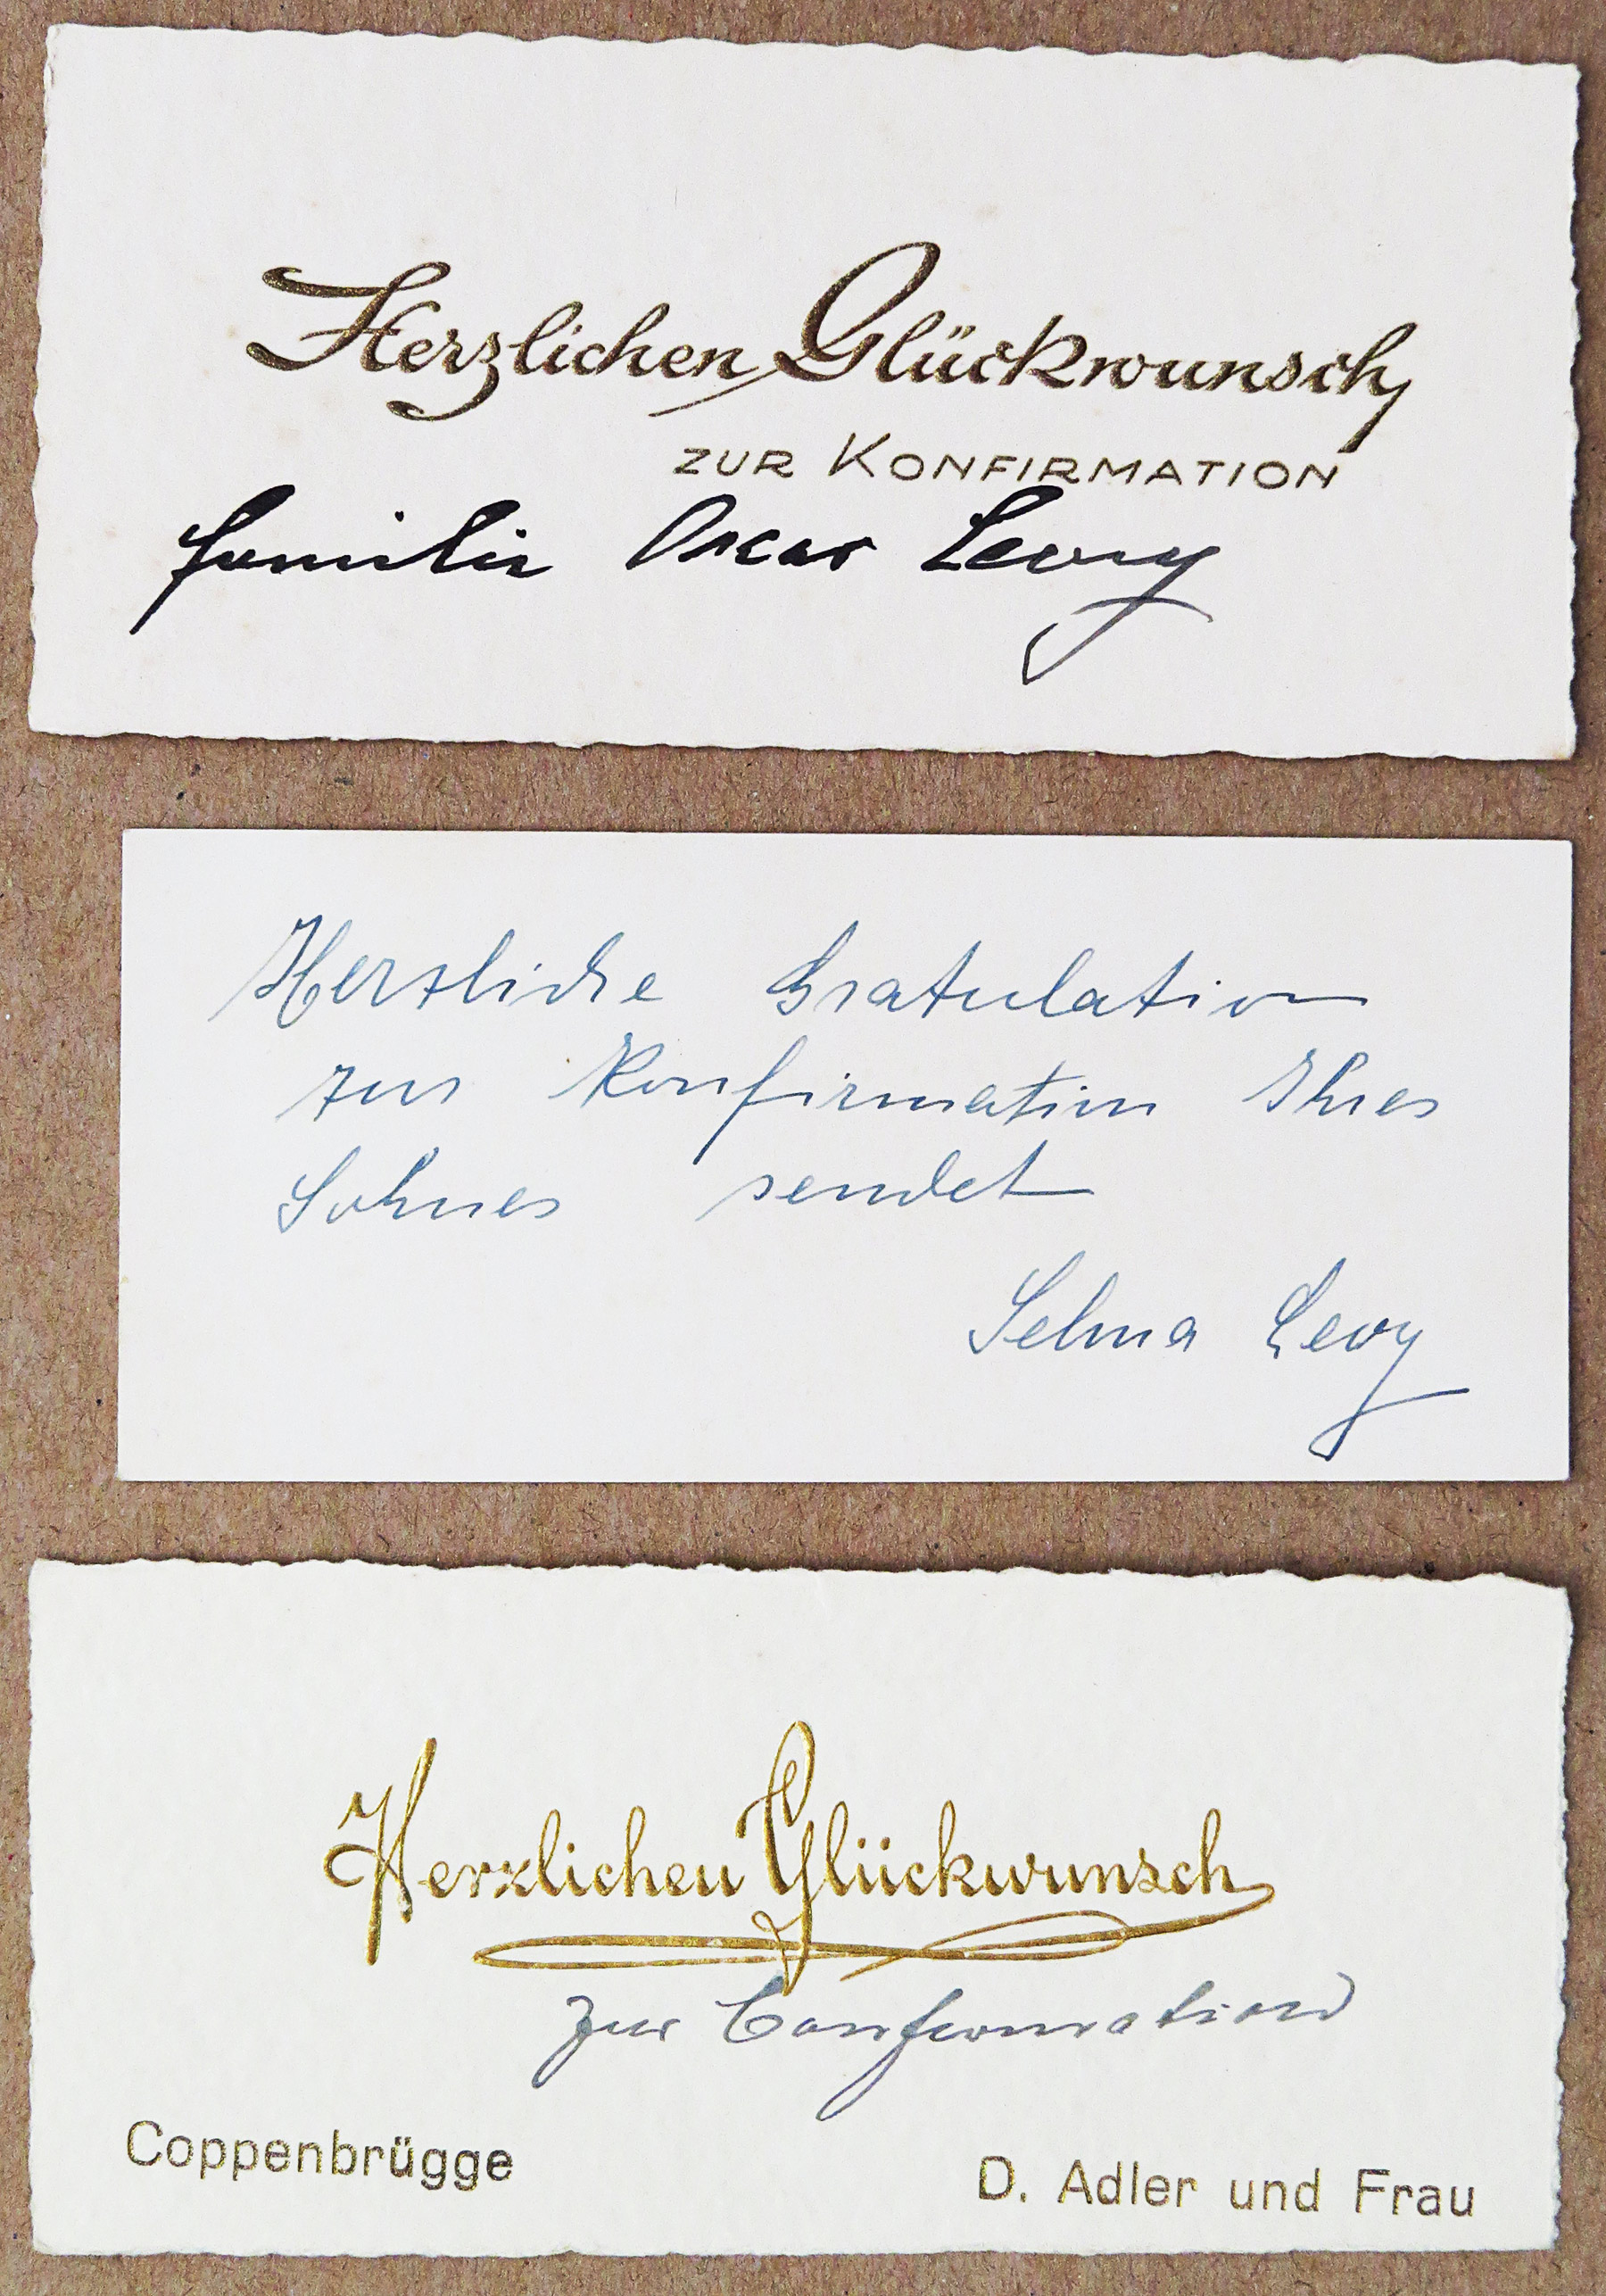 Herzlichen Glückwunsch
ZUR KONFIRMATION
Familie Oscar Levy
Herzliche Gratulation
zur Konfirmation Ihres
Sohnes sendet
Selma Levy
Herzlichen Glückwunsch
zur Confirmation
Coppenbrügge
D. Adler und Frau